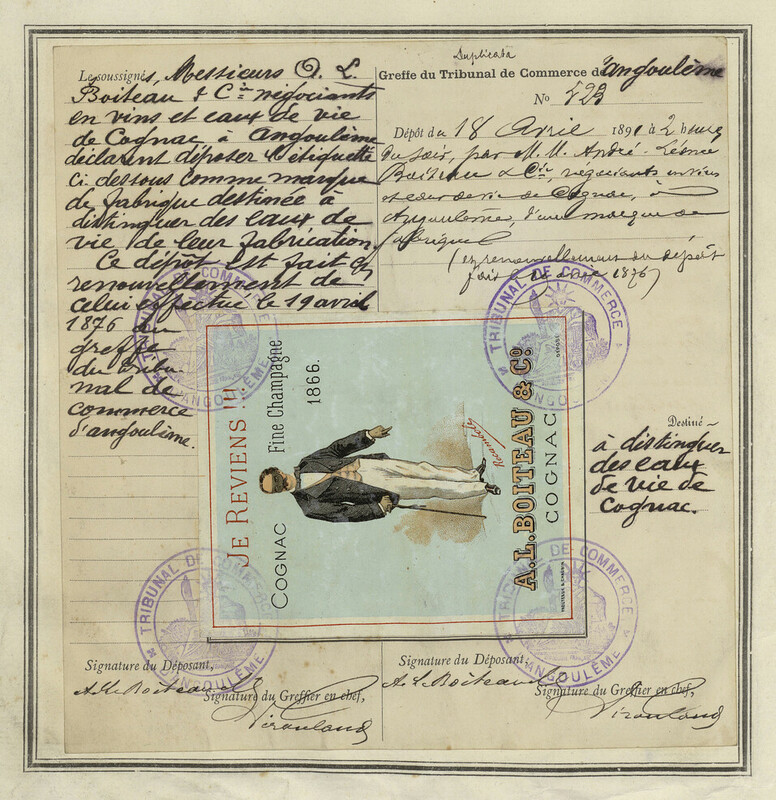 Le soussignés, Messieurs A. L.
Boiteau & Cie négociants
en vins et eaux de vie
de Cognac à Angoulême
déclarent déposer l'étiquette
ci dessous comme marque
de fabrique destinée à
distinguer des eaux de
vie de leur fabrication.
Ce dépôt est fait en
renouvellement de
celui effectué le 19 avril
1876 au
greffe
du tribu-
nal de
commerce
d'angoulême.
Duplicata
Greffe du Tribunal de Commerce d'angoulême
No 523
Dépôt du 18 Avril 1891 à 2 heures
du soir, par M.M. André-Léonce
Boiteau & Cie, négociants en vins
et eaux de vie de Cognac, à
Angoulême, d'une marque de
fabrique
(en renouvellement du dépôt
fait le 1876)
TRIBUNAL DE COMMERCE
D'ANGOULÊME
TRIBUNAL DE COMMERCE
D'ANGOULÊME
JE REVIENS !!!
COGNAC Fine Champagne
1866.
A.L.BOITEAU & Co
COGNAC
DÉPOSÉ
Destiné
à distinguer
des eaux
de vie de
Cognac.
TRIBUNAL DE COMMERCE
D'ANGOULÊME
TRIBUNAL DE COMMERCE
D'ANGOULÊME
Signature du Déposant,
A. L. Boiteau
Signature du Greffier en chef,
Signature du Déposant,
A. L. Boiteau
Signature du Greffier en chef,